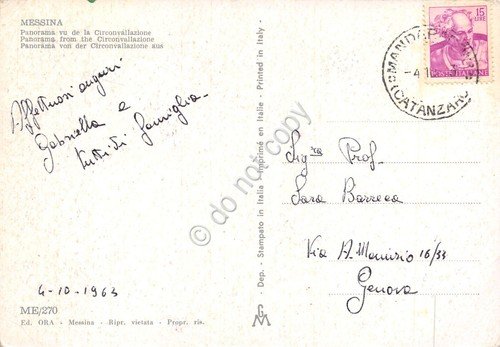 MESSINA
Panorama vu de la Circonvallazione
Panorama from the Circonvallazione
Panorama von der Circonvallazione aus
Affettuosi auguri
Gabriella e
tutti di famiglia.
4-10-1963
ME/270
Ed. ORA - Messina - Ripr. vietata - Propr. ris.
Dep. - Stampato in Italia - Imprimé en Italie - Printed in Italy -
15
LIRE
POSTE ITALIANE
(CATANZARO)
Sig.ra Prof.
Sara Barreca
Via A. 16/33
Genova
© do not copy